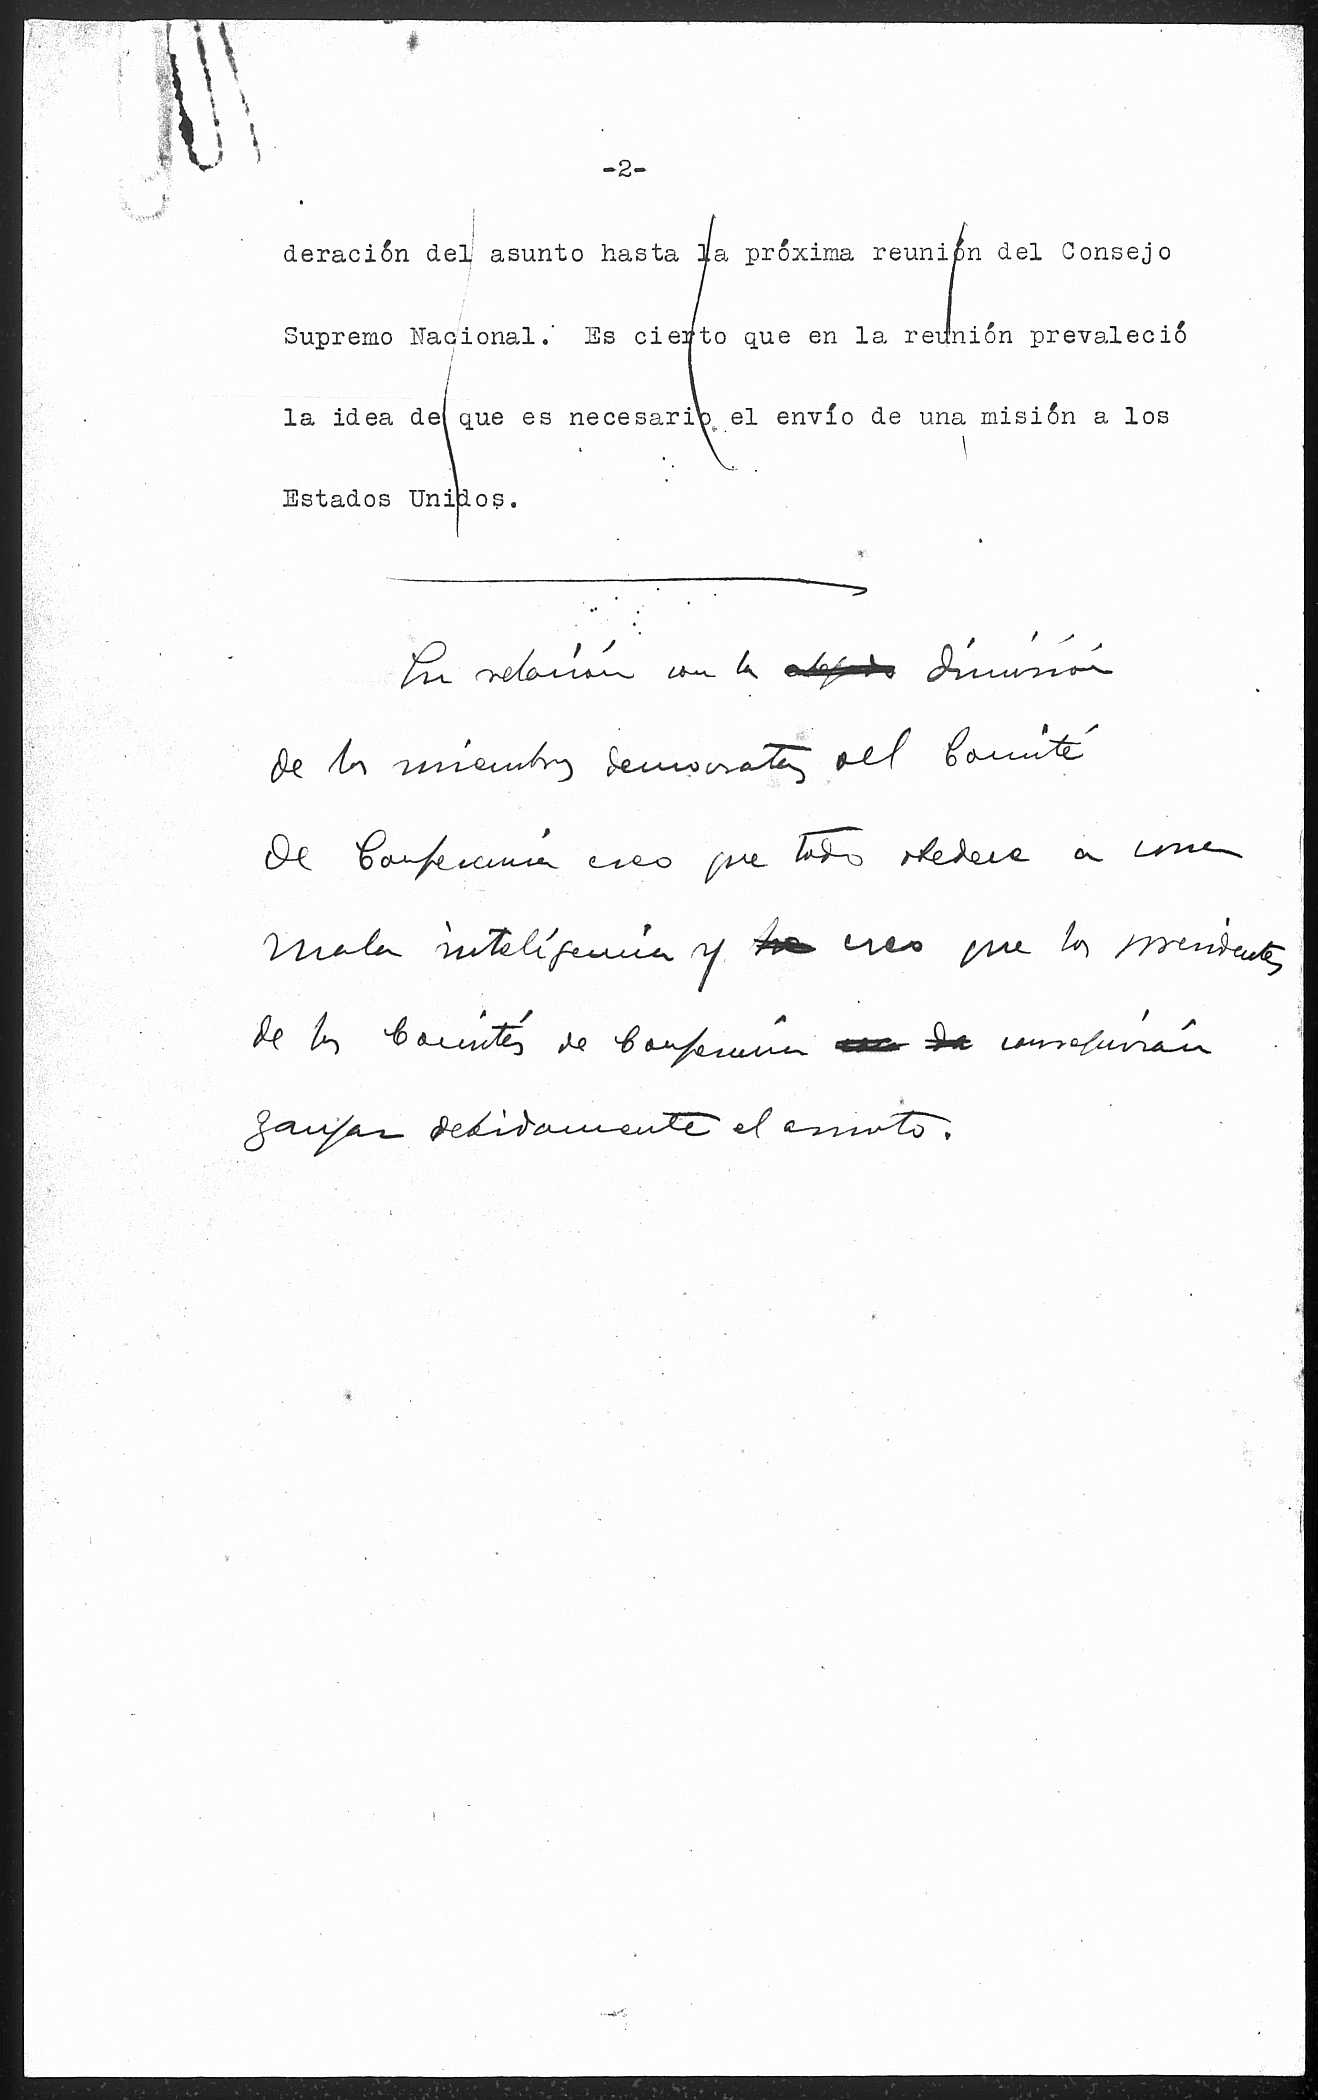 -2-
deración del asunto hasta la próxima reunión del Consejo
Supremo Nacional. Es cierto que en la reunión prevaleció
la idea de que es necesario el envío de una misión a los
Estados Unidos.
En relación con la dimisión
de los miembros democratas del Comité
de Conferencia creo que todo obedece a una
mala inteligencia y creo que los presidentes
de los Comités de Conferencia conseguirán
zanjar debidamente el asunto.